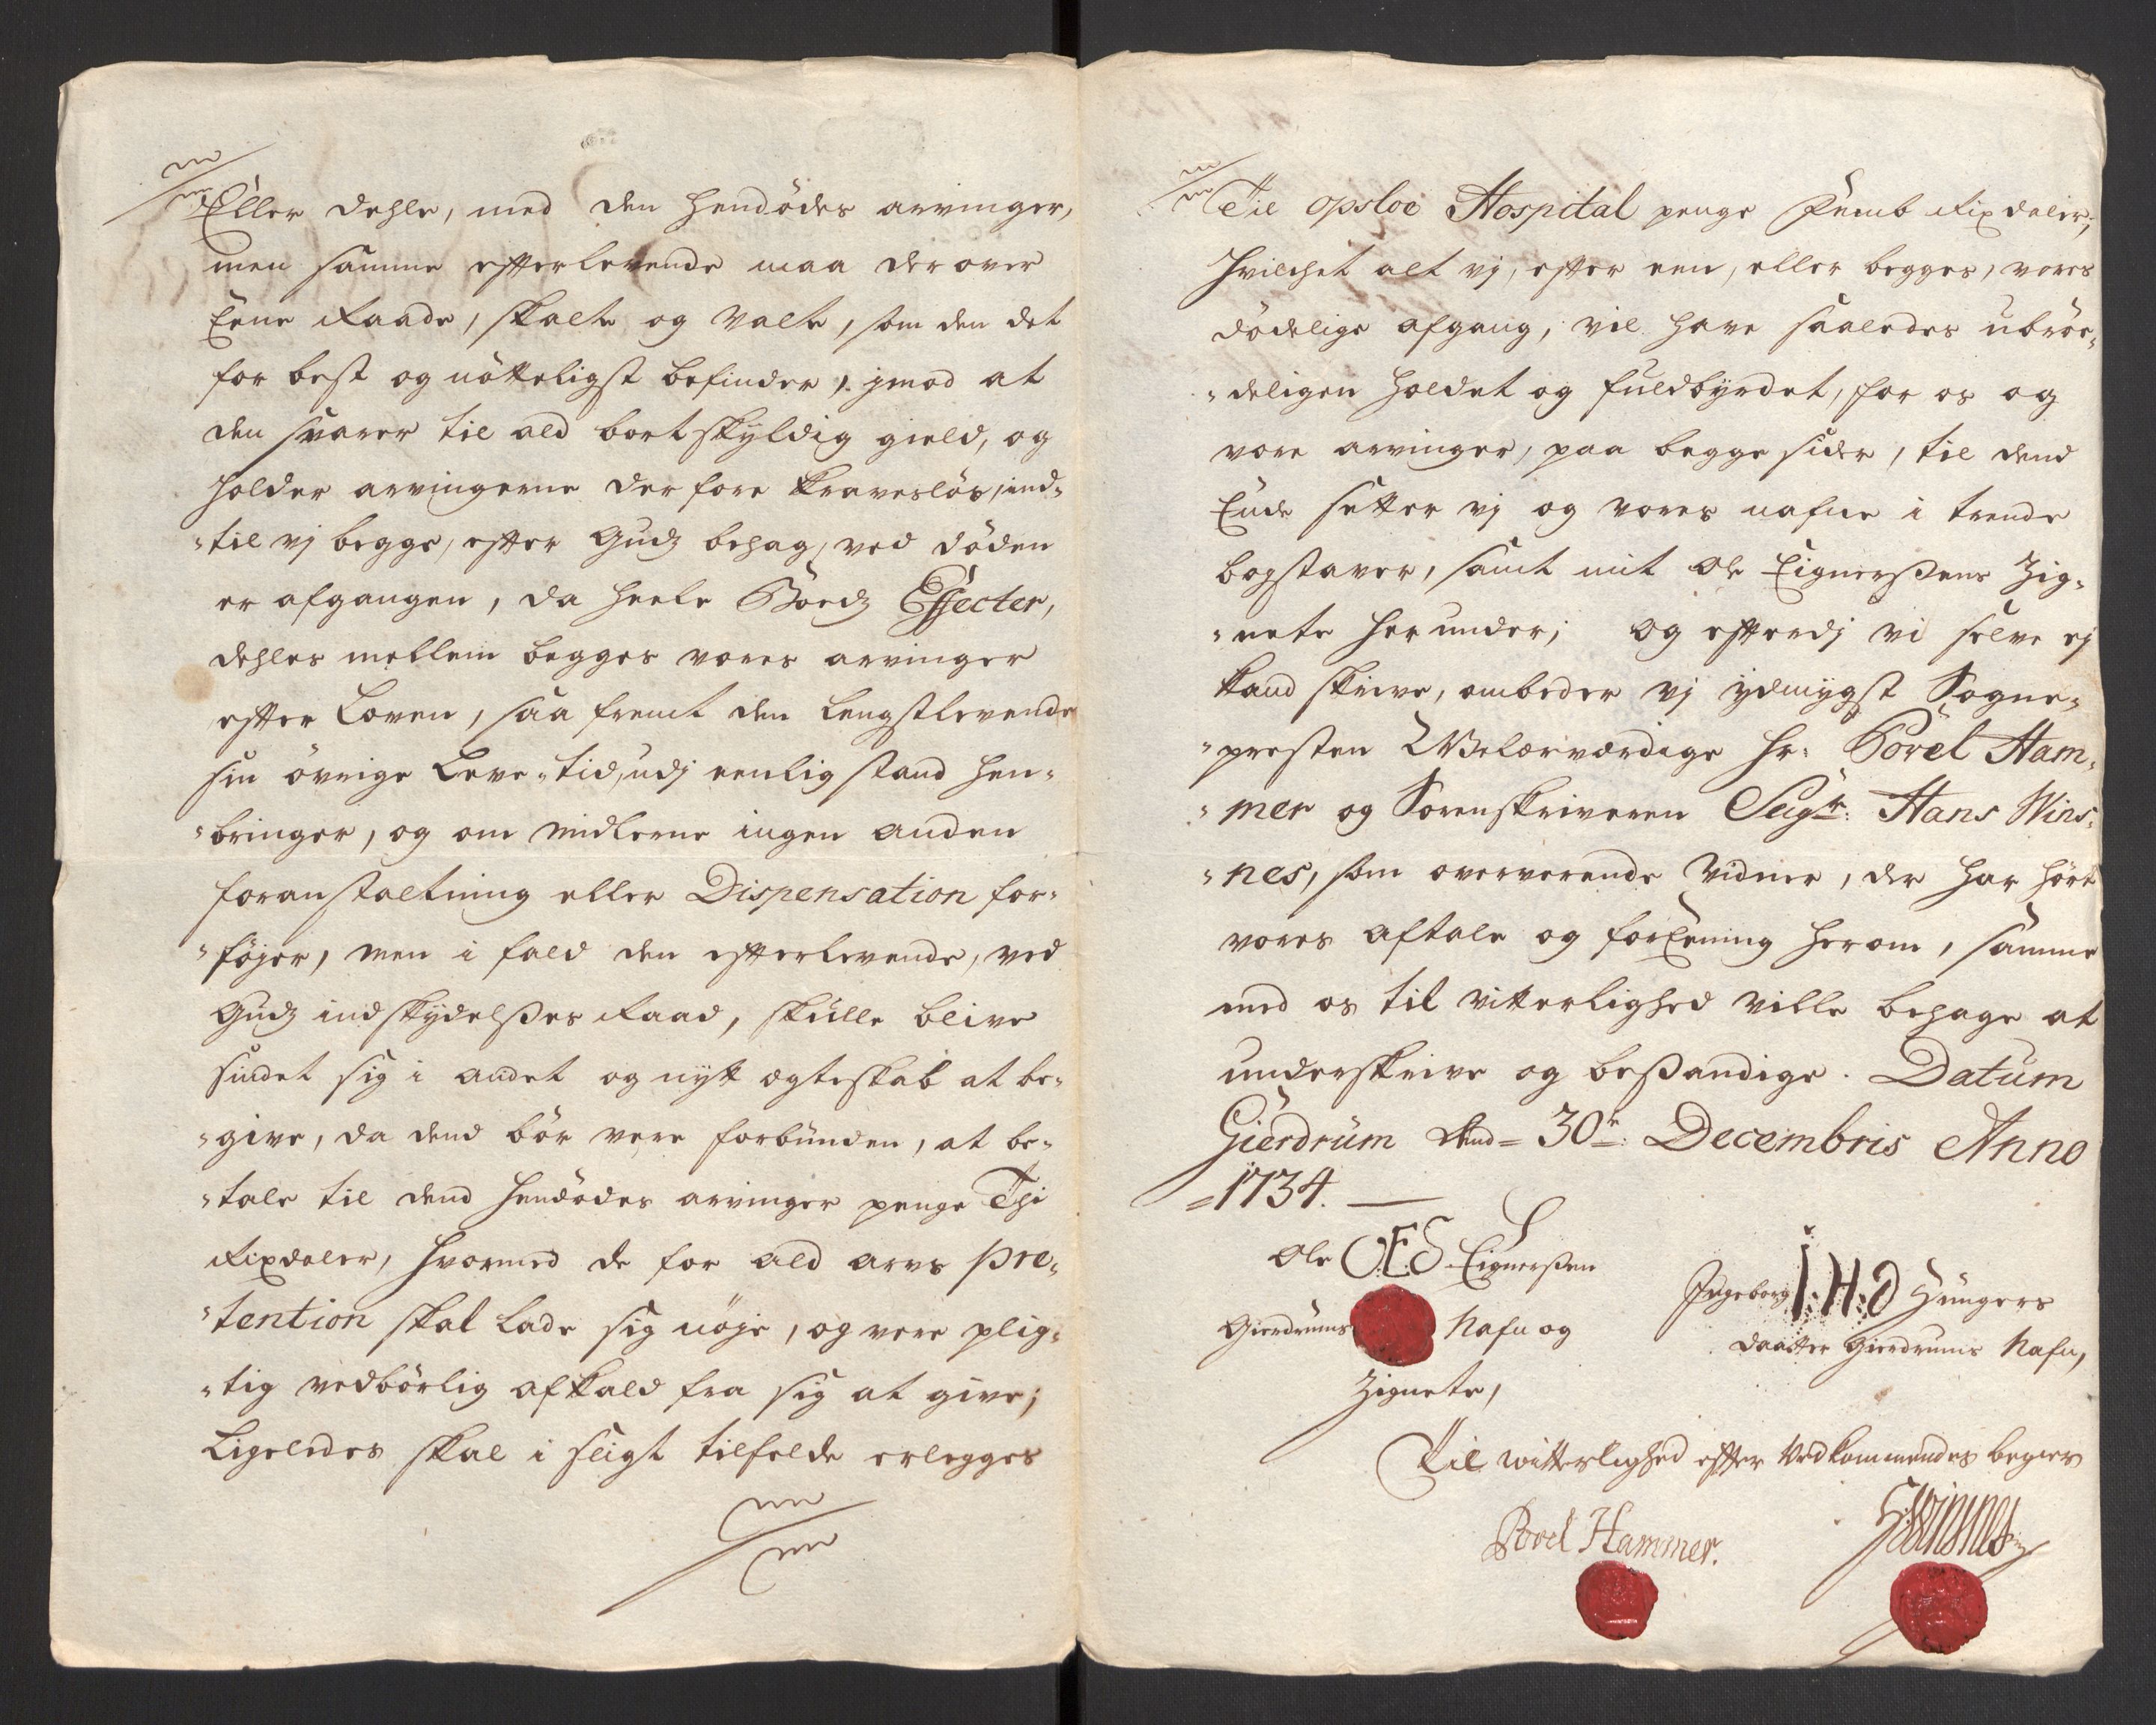 Eller dehle, med den hendödes arvinger,
men samme efterlevende maa derover
Eene Raade, skalte og valte, som den det
for best og nötteligst befinder, jmod at
den svarer til ald bortskÿldig gield, og
holder arvingerne derfore kravesløs, ind-
"til vj begge, efter Gudz behag, ved döden
er afgangen, da heele Boedz Effecter,
dehles mellem begges vores arvinger
efter Loven, saa fremt den Lengstlevende
sin övrige Leve-tid, udj eenlig stand hen-
"bringer, og om midlerne ingen anden
foranstaltning eller Dispensation for-
"föjer, men i fald den efterlevende, ved
Gudz indskÿdelßes Raad, skulle blive
sindet sig i andet og nÿtt ægteskab at be-
"give, da dend bör vere forbunden, at be-
"tale til dend hendödes arvinger penge Thi
Rixdaler, hvormed de for ald arvs pre-
"tention skal lade sig nöje, og vere plig-
"tig vedbörlig afkald fra sig at give;
Ligeledes skal i sligt tilfelde erlegges
Til Opsloe Hospital penge Femb Rixdaler;
Hvilchet alt vj, efter een, eller begges, vores
dödelige afgang, vil have saaledes ubröe-
"deligen holdet og fuldbÿrdet, for os og
vore arvinger, paa begge sider, til dend
Ende setter vj og vores nafne i trende
bogstaver, samt mit Ole Eignerßens Zig-
"nete herunder; og efterdj vi selve ej
kand skrive, ombeder vj ÿdmÿgst Sogne-
"presten Welærværdige Hr: Povel Ham-
"mer og Sorenskriveren Seigr: Hans Wins-
"nes, som oververende vidner, der har hört
vores aftale og forEening herom, samme
med os til vitterlighed ville behage at
underskrive og beßandige. Datum
Gierdrum dend = 30te: Decembris Anno
=1734.
Ole O.E.S Eignerßen
Gierdrums Nafn og
Zignete,
Ingeborg I.H.D Hungers
daatter Gierdrums Nafn,
Til witterlighed efter Vedkommendes begier
Povel Hammer.
HWinsnes